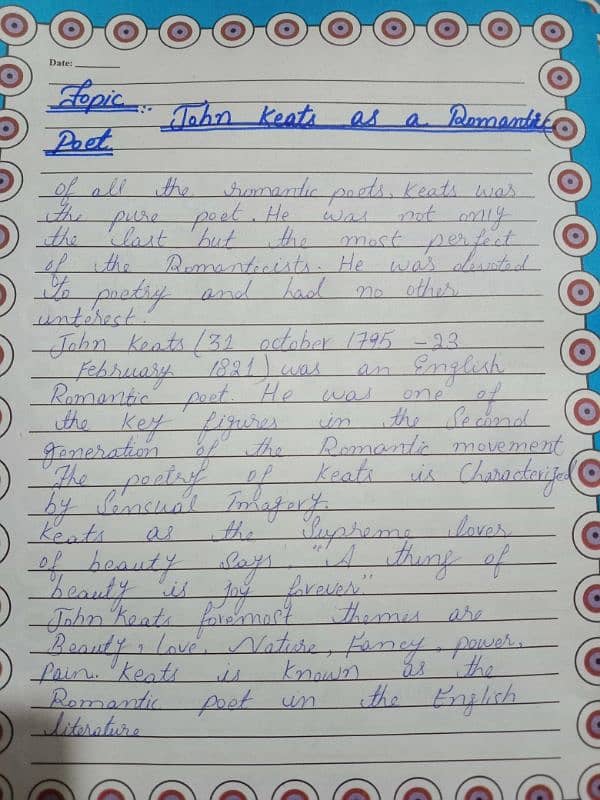 Date:
Topic :. John Keats as a Romantic
Poet
of all the romantic poets, Keats was
the pure poet. He was not only
the last but the most perfect
of the Romanticists. He was devoted
to poetry and had no other
interest.
John Keats (31 october 1795 - 23
February 1821) was an English
Romantic poet. He was one of
the key figures in the Second
generation of the Romantic movement
The poetry of Keats is Characterized
by Sensual Imagery.
Keats as the Supreme lover
of beauty Says, "A thing of
beauty is joy forever."
John Keats foremost themes are
Beauty, Love, Nature, Fancy, power,
Pain. Keats is known as the
Romantic poet in the English
literature